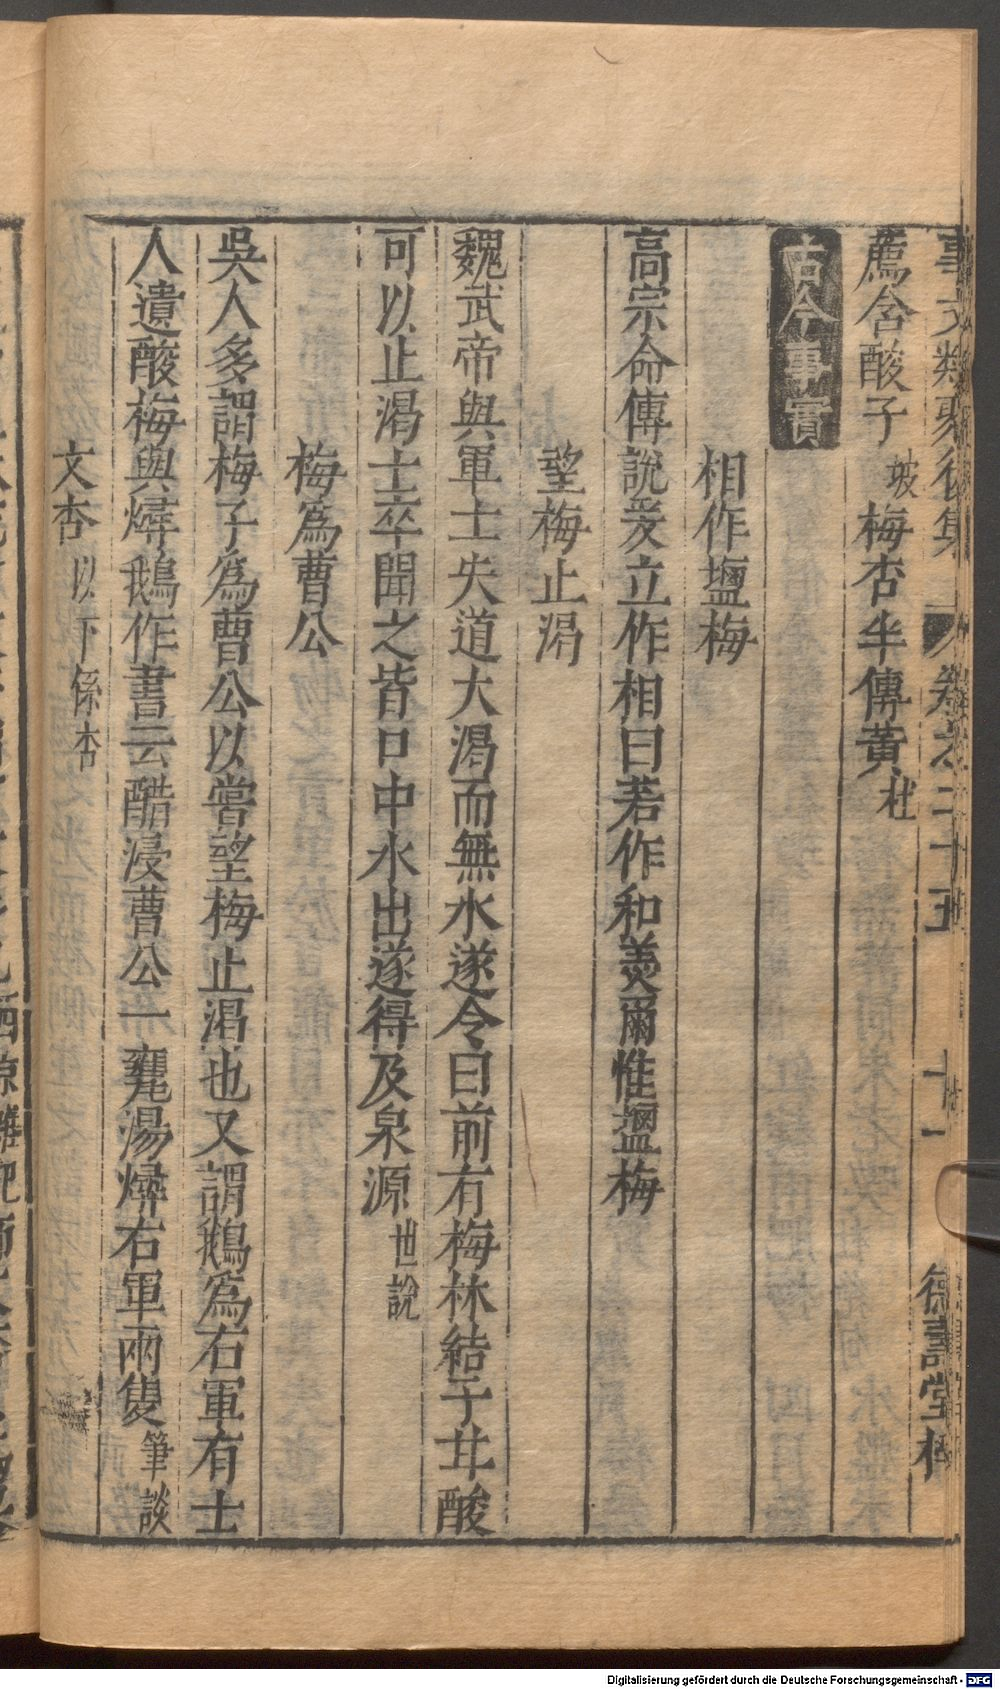 事文類聚後集 卷之二十五 十一 德壽堂梓
薦含酸子坡梅杏半傳黃杜
古今事實
相作鹽梅
高宗命傅說爰立作相曰若作和羹爾惟鹽梅
望梅止渴
魏武帝與軍士失道大渴而無水遂令曰前有梅林結子甘酸
可以止渴士卒聞之皆口中水出遂得及泉源世說
梅為曹公
吳人多謂梅子為曹公以嘗望梅止渴也又謂鵝為右軍有士
人遺酸梅與燖鵝作書云醋浸曹公一甕湯燖右軍兩隻筆談
文杏以下係杏
Digitalisierung gefördert durch die Deutsche Forschungsgemeinschaft - DFG